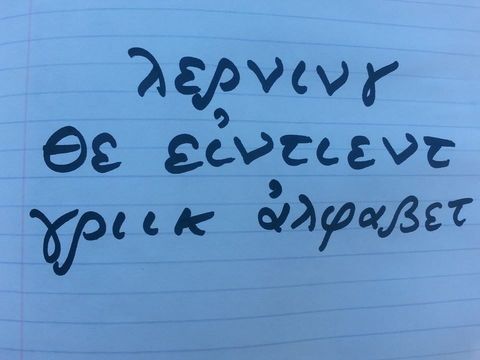 λερνινγ
θε εἰντιεντ
γριικ ἀλφαβετ